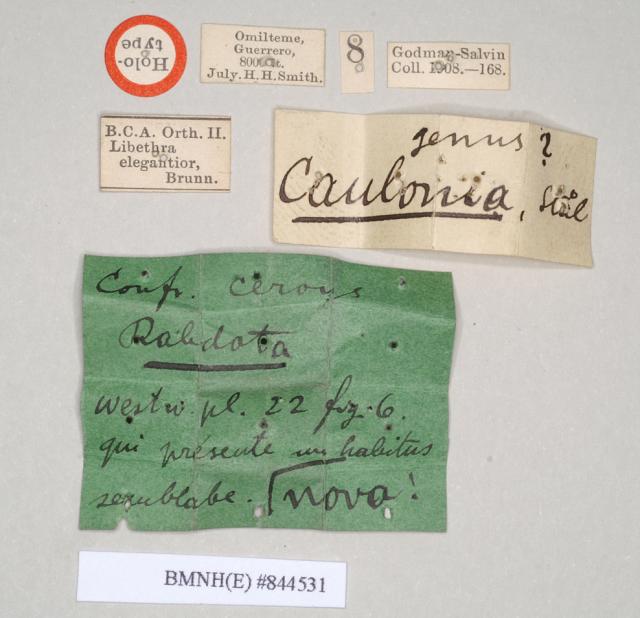 Holo-
type
Omilteme,
Guerrero,
8000 ft.
July. H. H. Smith.
8
Godman-Salvin
Coll. 1908.—168.
B.C.A. Orth. II.
Libethra
elegantior,
Brunn.
genus?
Caulonia, Stål
Confr. ceroys
Rabdota
westw. pl. 22 fig. 6.
qui présente un habitus
semblabe. nova!
BMNH(E) #844531